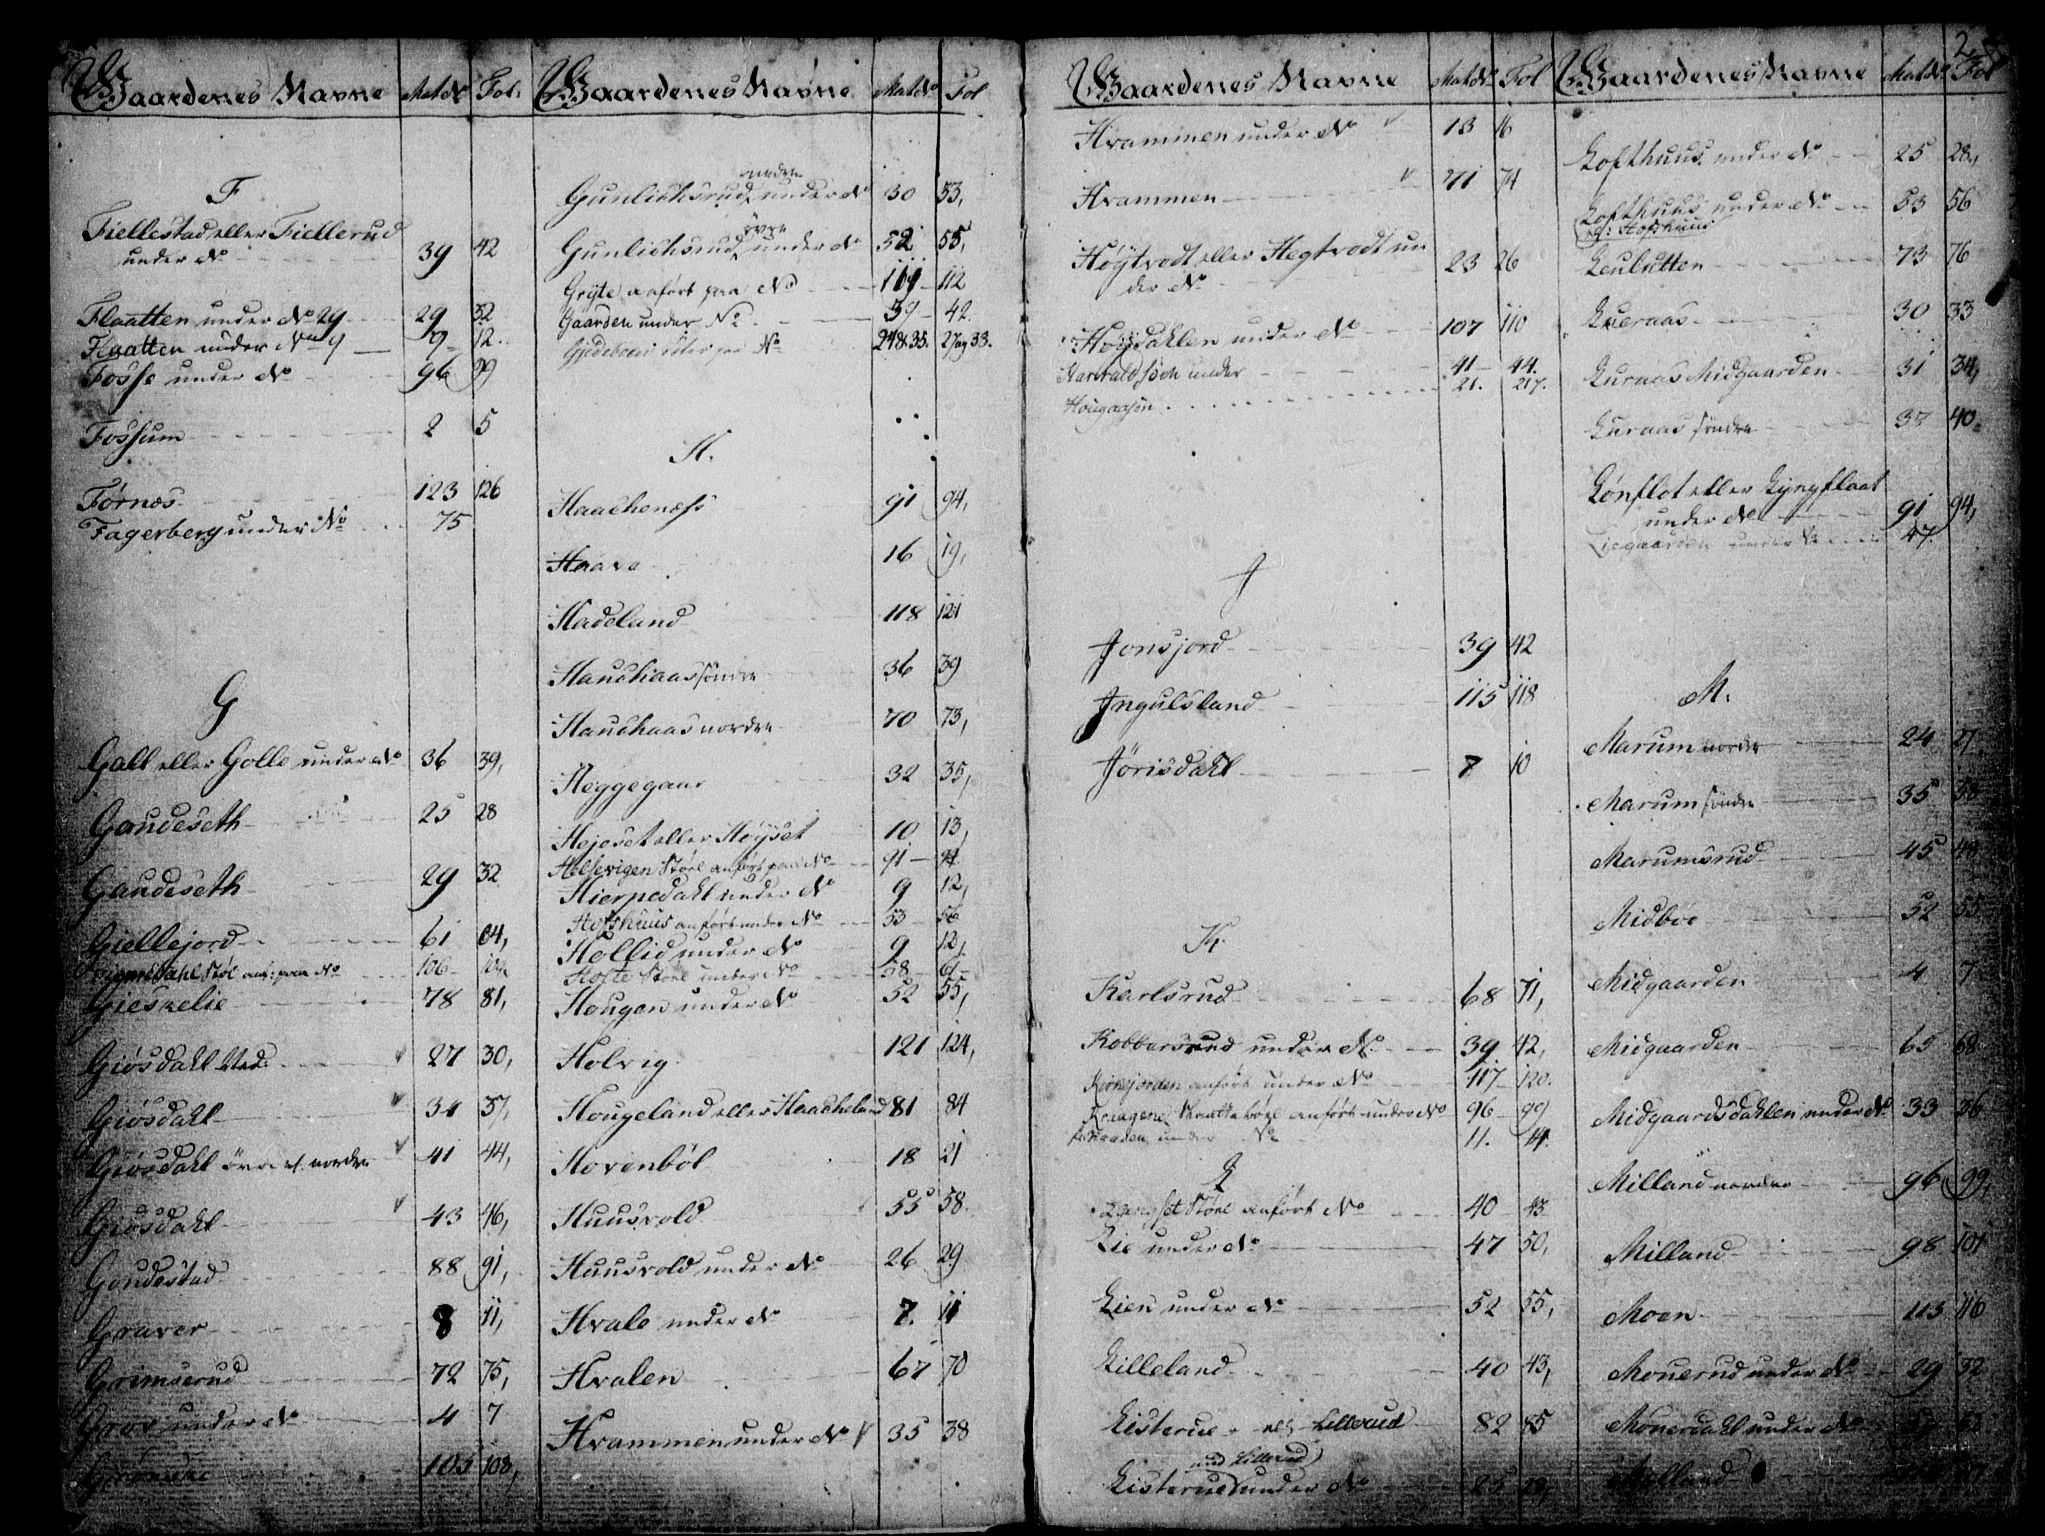 Gaardenes Navne Mat No Fol.
F
Fiellestad eller Fiellerud
under No 39 42
Flaatten under No 29 29 32
Flaatten under No 9 9 12
Fosse under No 96 99
Fossum 2 5
Førnæs 123 126
Fagerberg under No 75
G
Galt eller Golle under No 36 39,
Gaudeseth 25 28
Gaudeseth 29 32
Giellejord 61 64,
Støl anf: paa No 106
Gieskelie 78 81,
Giøsdahl Ned. 27 30,
Giøsdahl 34 37,
Giøsdahl øvre el. nordre 41 44,
Giøsdahl 43 46,
Goudestad 88 91,
Graver 8 11,
Grimserud 72 75,
Grov under No 4 7
105 108,
Gaardenes Navne Mat No Fol
nordre
Gunlichsrud under No 30 33,
øvre
Gunlichsrud under No 52 55,
Gryte anført paa No 119 112
Gaarden under No 39 42.
paa No 24 & 35. 27 og 33.
H.
Haachenæss 91 94,
Haave 16 19,
Hadeland 118 121
Hauchaas søndre 36 39
Hauchaas nordre 70 73,
Heggegaar 32 35,
Hejeset eller Høyset 10 13,
Helsevigen Støl anført paa No 91 94
Hierpedahl under No 9 12,
Hofshuus anført under No 53 56
Hollid under No 9 12,
Hofte Støl under No 58 61
Hougen under No 52 55,
Holvig 121 124,
Hougeland eller Haacheland 81 84
Hovenbøl 18 21
Huusvold 55 58
Huusvold under No 26 29
Hvale under No 7. 11
Hvalen 67 70
Hvammen under No 35 38
Gaardenes Navne Mat No Fol
Hvammen under No 13 16
Hvammen 71 74
Høytvedt eller Hegtvedt un
der No 23 26
Høydahlen under No 107 110
under 41 44.
Hougaasen 21. 217.
J
Jonsjord 39 42
Jngulsland 115 118
Jørisdahl 7 10
K.
Karlsrud 68 71,
Kobbersrud under No 39 42,
Kirkejorden anført under No 117 120.
Kraagene anført under No 96 99
under No 11. 14.
L
Støl anført No 40 43
Lie under No 47 50,
Lien under No 52 55,
Lilleland 40 43,
Listerue el. Lillerud 82 85
Lillerud
Listerue under No 25 28,
Gaardenes Navne Mat No Fol
2
Lofthuus under No 25 28,
Lofthuus under No 53 56
el: Hofshuus
Leulutten 73 76
Lueraas 30 33
Luraas Midgaarden 31 34,
Luraas søndre 37 40
Lønflot eller Lyngflaat
under No 91 94,
Liegaarden under No 47.
M.
Marum nordre 24 27
Marum søndre 35 38
Marumsrud 45 48
Midbøe 52 55
Midgaarden 4 7
Midgaarden 65 68
Midgaardsdahlen under No 33 36
Milland nordre 96 99,
Milland 98 101
Moen 113 116
Mouerud under No 29 32
Mouerdahl under No
Mælland